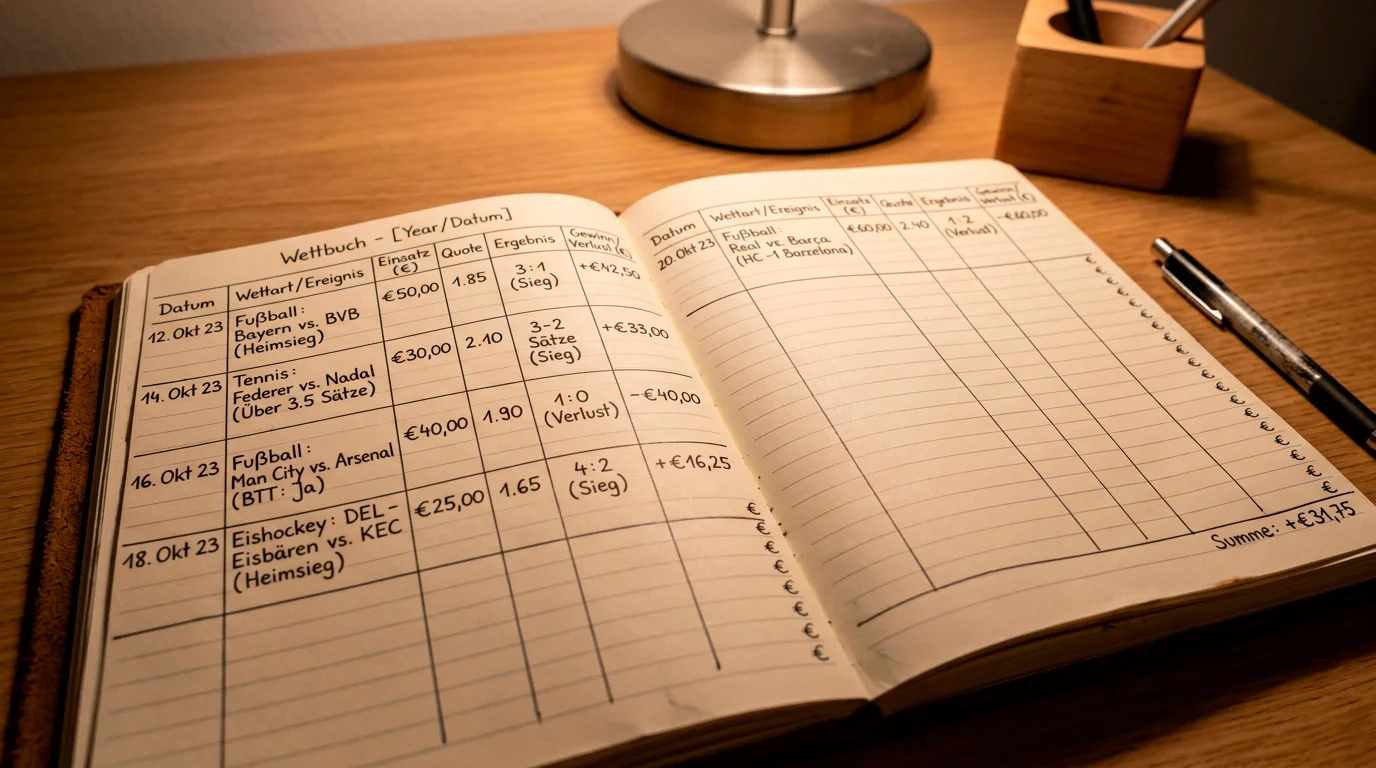 Wettbuch – [Year/Datum]
Datum Wettart/Ereignis Einsatz (€) Quote Ergebnis Gewinn/Verlust (€)
12. Okt 23 Fußball: €50,00 1.85 3:1 +€42,50
Bayern vs. BVB (Sieg)
(Heimsieg)
14. Okt 23 Tennis: €30,00 2.10 3-2 +€33,00
Federer vs. Nadal Sätze
(Über 3.5 Sätze) (Sieg)
16. Okt 23 Fußball: €40,00 1.90 1:0 –€40,00
Man City vs. Arsenal (Verlust)
(BTT: Ja)
18. Okt 23 Eishockey: DEL – €25,00 1.65 4:2 +€16,25
Eisbären vs. KEC (Sieg)
(Heimsieg)
€
€
€
€
€
€
€
€
Datum Wettart/Ereignis Einsatz (€) Quote Ergebnis Gewinn/Verlust (€)
20. Okt 23 Fußball: €60,00 2.40 1:2 –€60,00
Real vs. Barça (Verlust)
(HC -1 Barcelona)
€
€
€
€
€
€
€
€
€
€
€
€
€
Summe: +€31,75